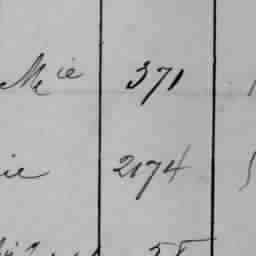 Mie 371
ie 2174